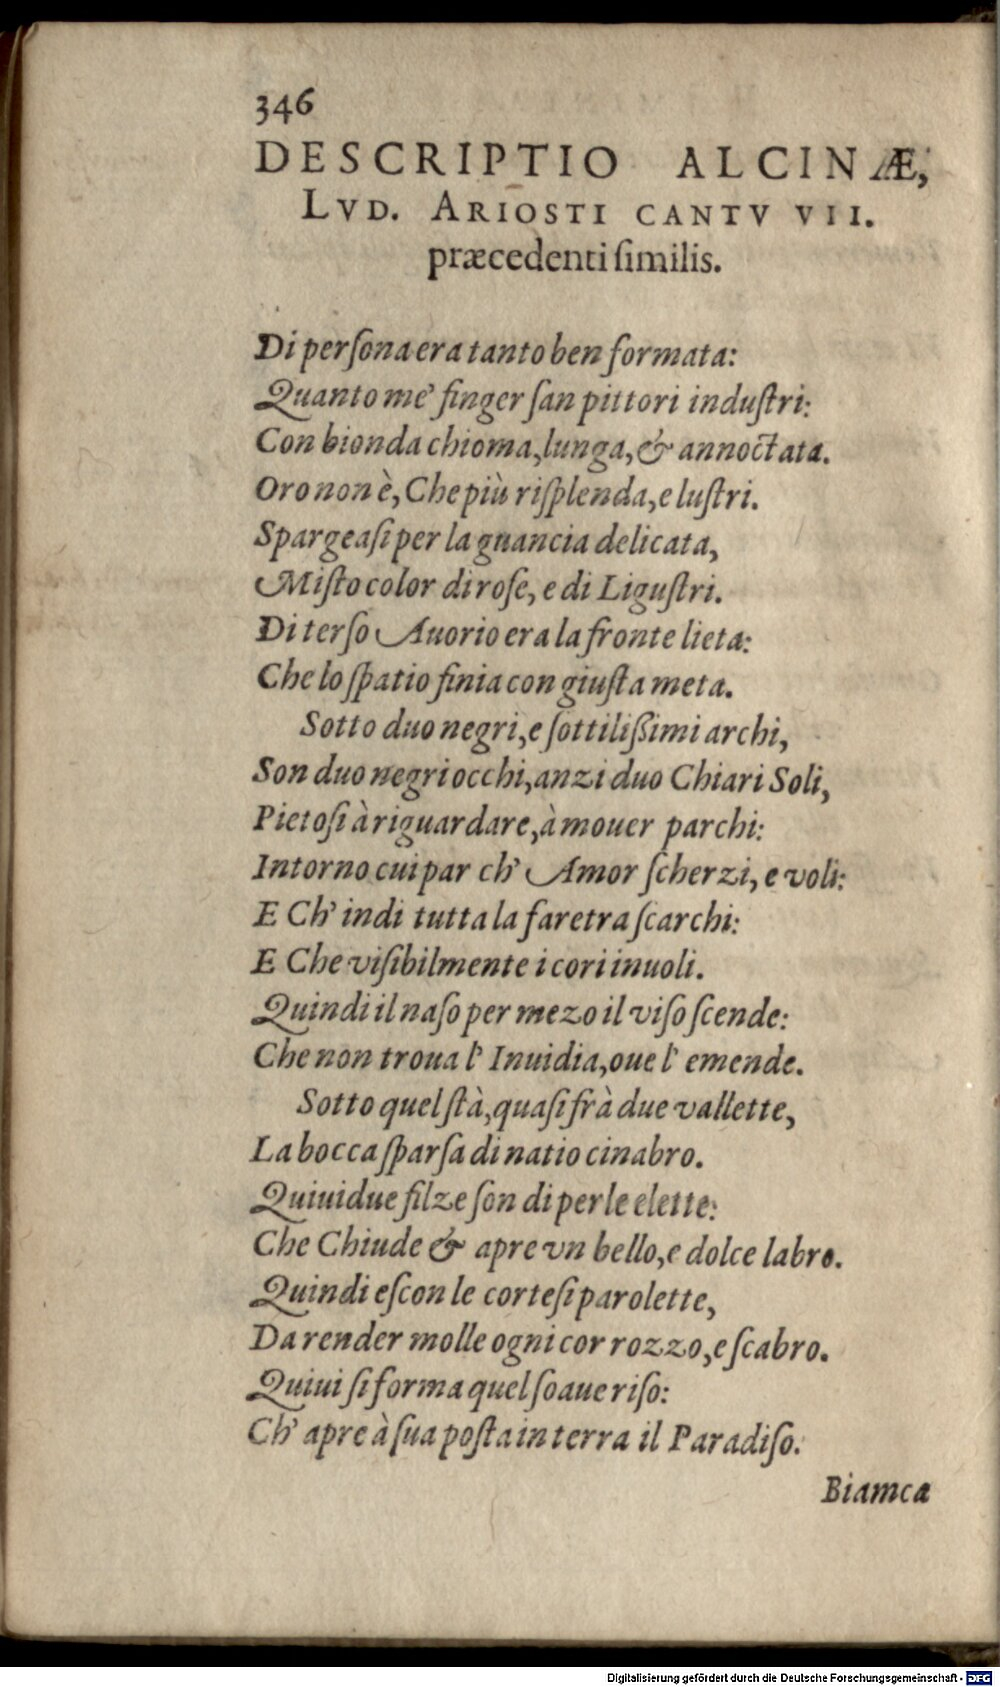 346
DESCRIPTIO ALCINÆ,
LVD. ARIOSTI CANTV VII.
præcedenti ſimilis.
Di perſona era tanto ben formata:
Quanto me' finger ſan pittori induſtri:
Con bionda chioma, lunga, & annoctata.
Oro non è, Che più riſplenda, e luſtri.
Spargeaſi per la guancia delicata,
Miſto color di roſe, e di Liguſtri.
Di terſo Auorio era la fronte lieta:
Che lo ſpatio finia con giuſta meta.
Sotto duo negri, e ſottilißimi archi,
Son duo negri occhi, anzi duo Chiari Soli,
Pietoſi à riguardare, à mouer parchi:
Intorno cui par ch' Amor ſcherzi, e voli:
E Ch' indi tutta la faretra ſcarchi:
E Che viſibilmente i cori inuoli.
Quindi il naſo per mezo il viſo ſcende:
Che non troua l' Inuidia, oue l' emende.
Sotto quel ſtà, quaſi frà due vallette,
La bocca ſparſa di natio cinabro.
Quiui due filze ſon di perle elette:
Che Chiude & apre vn bello, e dolce labro.
Quindi eſcon le corteſi parolette,
Da render molle ogni cor rozzo, e ſcabro.
Quiui ſi forma quel ſoaue riſo:
Ch' apre à ſua poſta in terra il Paradiſo.
Biamca
Digitalisierung gefördert durch die Deutsche Forschungsgemeinschaft - DFG